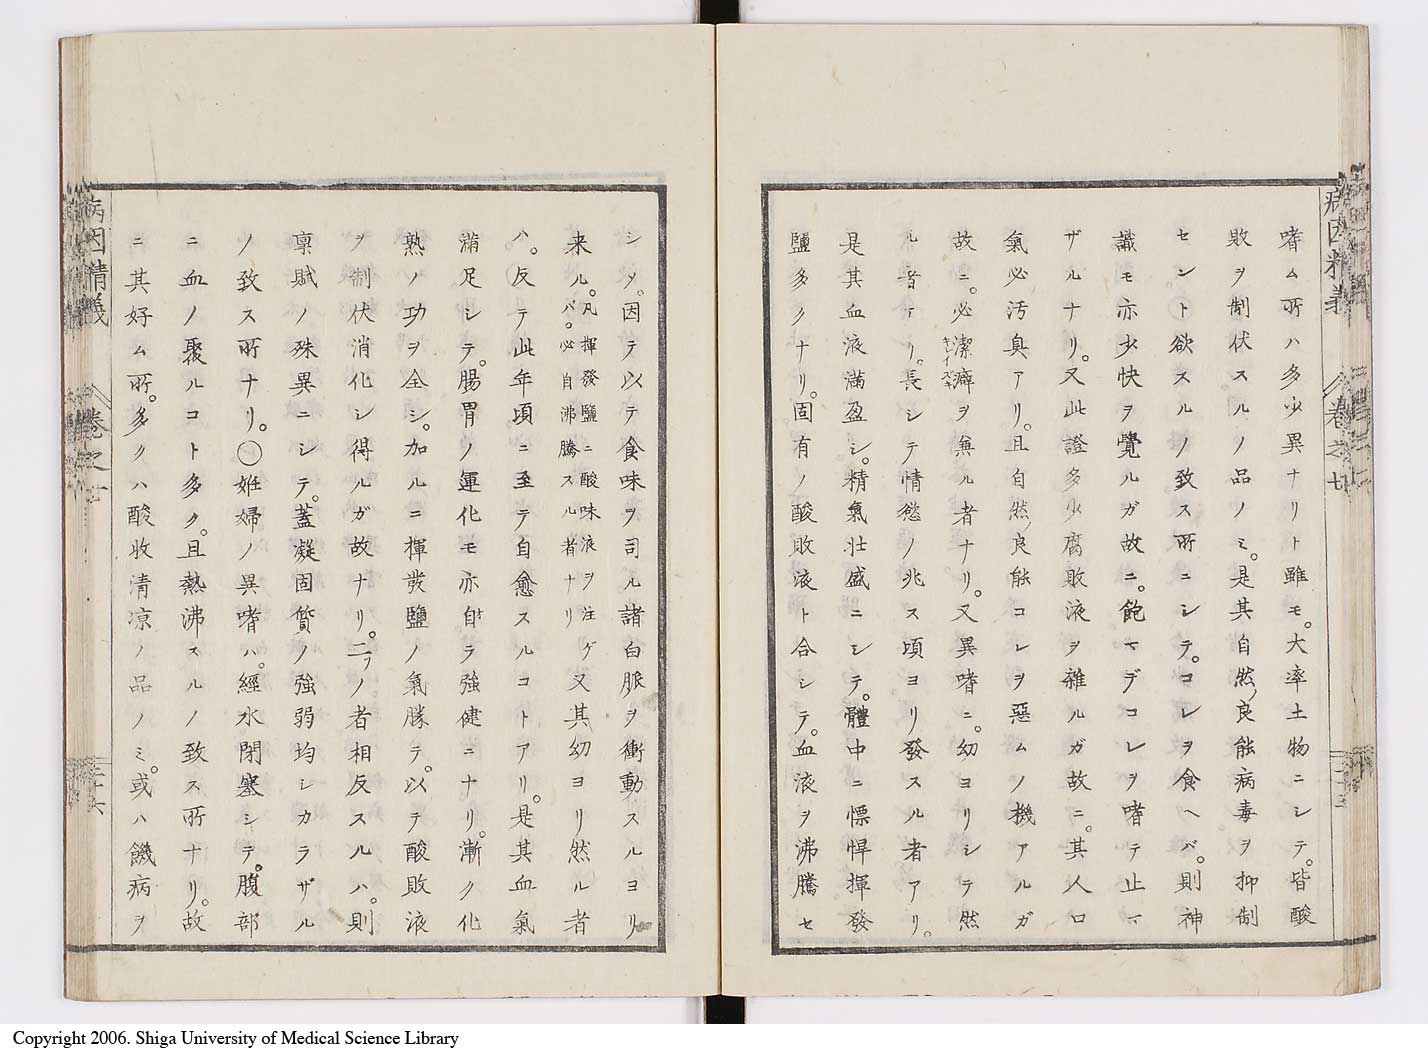 病因精義
卷之七
二十五
嗜ム所ハ多少異ナリト雖モ。大率土物ニシテ。皆酸
敗ヲ制伏スルノ品ノミ。是其自然ノ良能病毒ヲ抑制
セント欲スルノ致ス所ニシテ。コレヲ食ヘバ。則神
識モ亦少快ヲ覺ルガ故ニ。飽マデコレヲ嗜テ止マ
ザルナリ。又此證多少腐敗液ヲ雜ルガ故ニ。其人口
氣必汚臭アリ。且自然ノ良能コレヲ惡ムノ機アルガ
故ニ。必潔癖ヲ兼ル者ナリ。又異嗜ニ。幼ヨリシテ然
キレイズキ
ル者アリ。長シテ情慾ノ兆ス頃ヨリ發スル者アリ。
是其血液滿盈シ。精氣壯盛ニシテ。體中ニ慓悍揮發
鹽多クナリ。固有ノ酸敗液ト合シテ。血液ヲ沸騰セ
シメ。因テ以テ食味ヲ司ル諸白脈ヲ衝動スルヨリ
来ル。凡揮發鹽ニ酸味液ヲ注ゲバ。必自沸騰スル者ナリ又其幼ヨリ然ル者
ハ。反テ此年頃ニ至テ自愈スルコトアリ。是其血氣
滿足シテ。腸胃ノ運化モ亦自ラ強健ニナリ。漸ク化
熟ノ功ヲ全シ。加ルニ揮發鹽ノ氣勝テ。以テ酸敗液
ヲ制伏消化シ得ルガ故ナリ。二ノ者相反スルハ。則
稟賦ノ殊異ニシテ。蓋凝固質ノ強弱均シカラザル
ノ致ス所ナリ。〇姙婦ノ異嗜ハ。經水閉塞シテ。腹部
ニ血ノ聚ルコト多ク。且熱沸スルノ致ス所ナリ。故
ニ其好ム所。多クハ酸收清凉ノ品ノミ。或ハ饑病ヲ
病因精義
卷之七
二十六
Copyright 2006. Shiga University of Medical Science Library